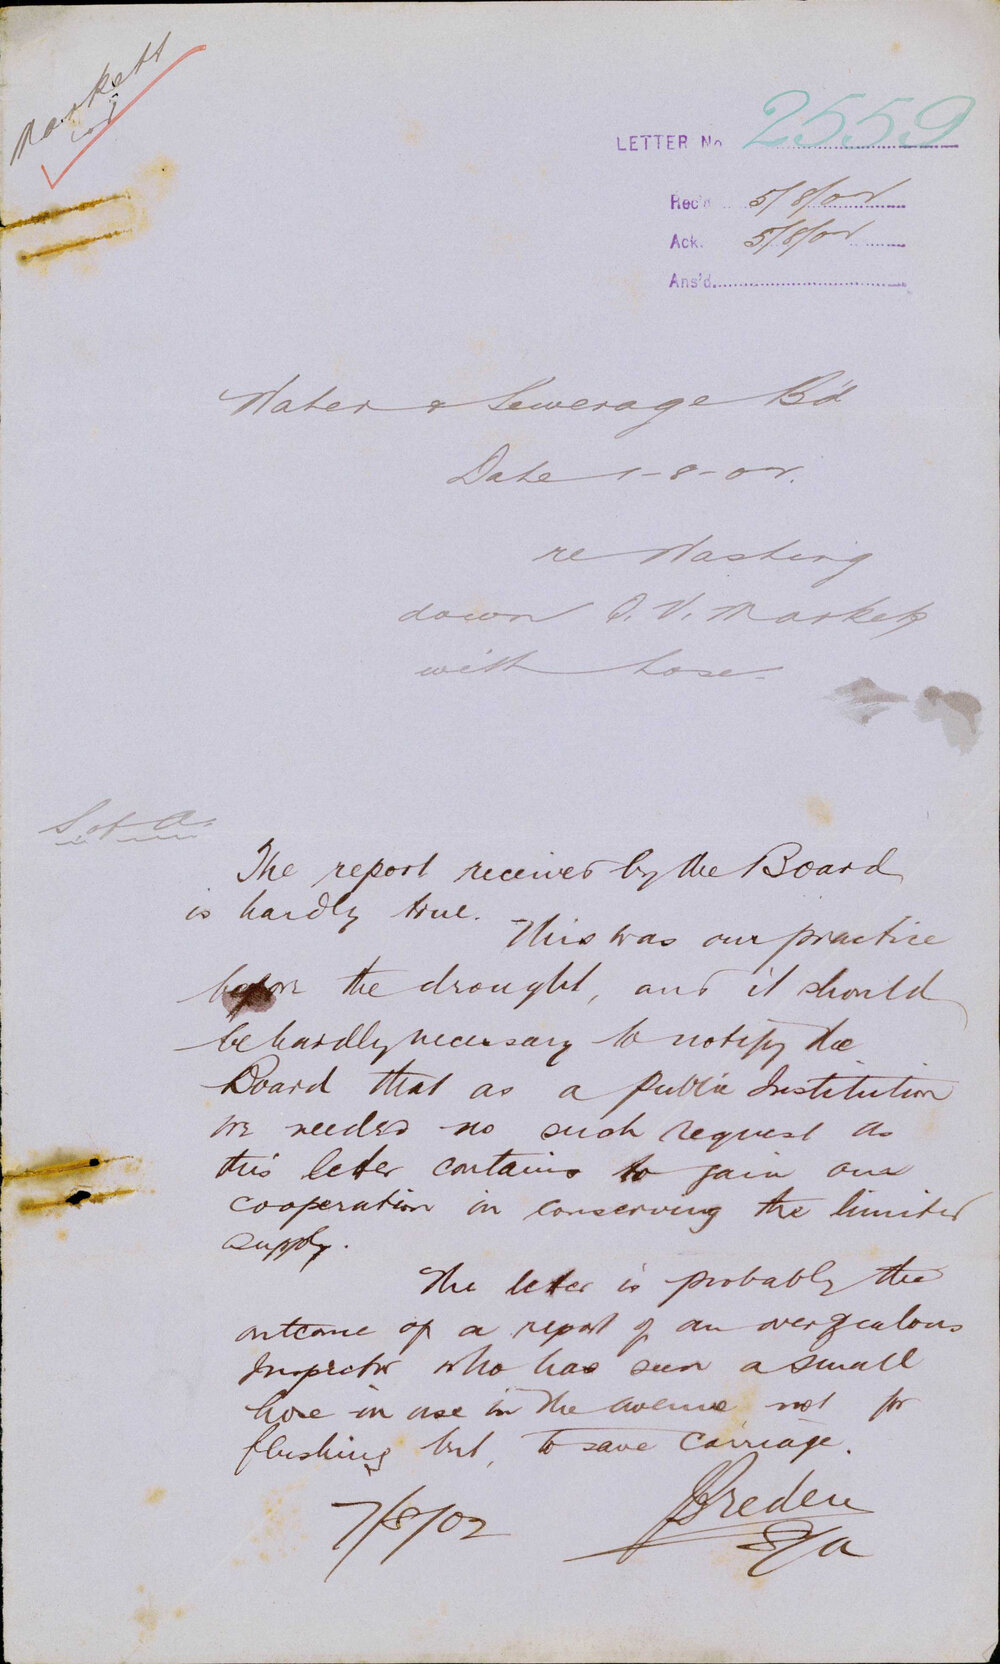 Markets
LETTER No 2559
Rec'd 5/8/02
Ack. 5/8/02
Ans'd.
Water & Sewerage Bd
Date 1-8-02.
re Washing
down Q. V. Markets
with hose.
S. of A.
The report received by the Board
is hardly true.
This was our practice
before the drought, and it should
be hardly necessary to notify the
Board that as a public Institution
we needed no such request as
this letter contains to gain our
cooperation in conserving the limited
supply.
The letter is probably the
outcome of a report of an overzealous
Inspector who has seen a small
hose in use in the avenue not for
flushing but, to save carriage.
7/8/02